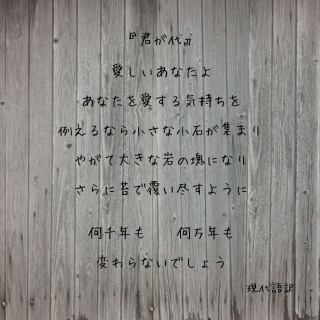 『君が代』
愛しいあなたよ
あなたを愛する気持ちを
例えるなら小さな小石が集まり
やがて大きな岩の塊になり
さらに苔で覆い尽すように
何千年も 何万年も
変わらないでしょう
現代語訳